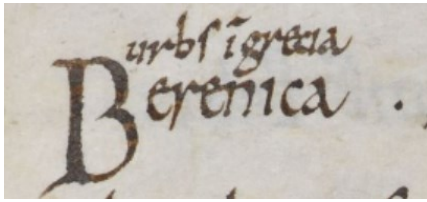 urbſ ī grecia
Berenica .